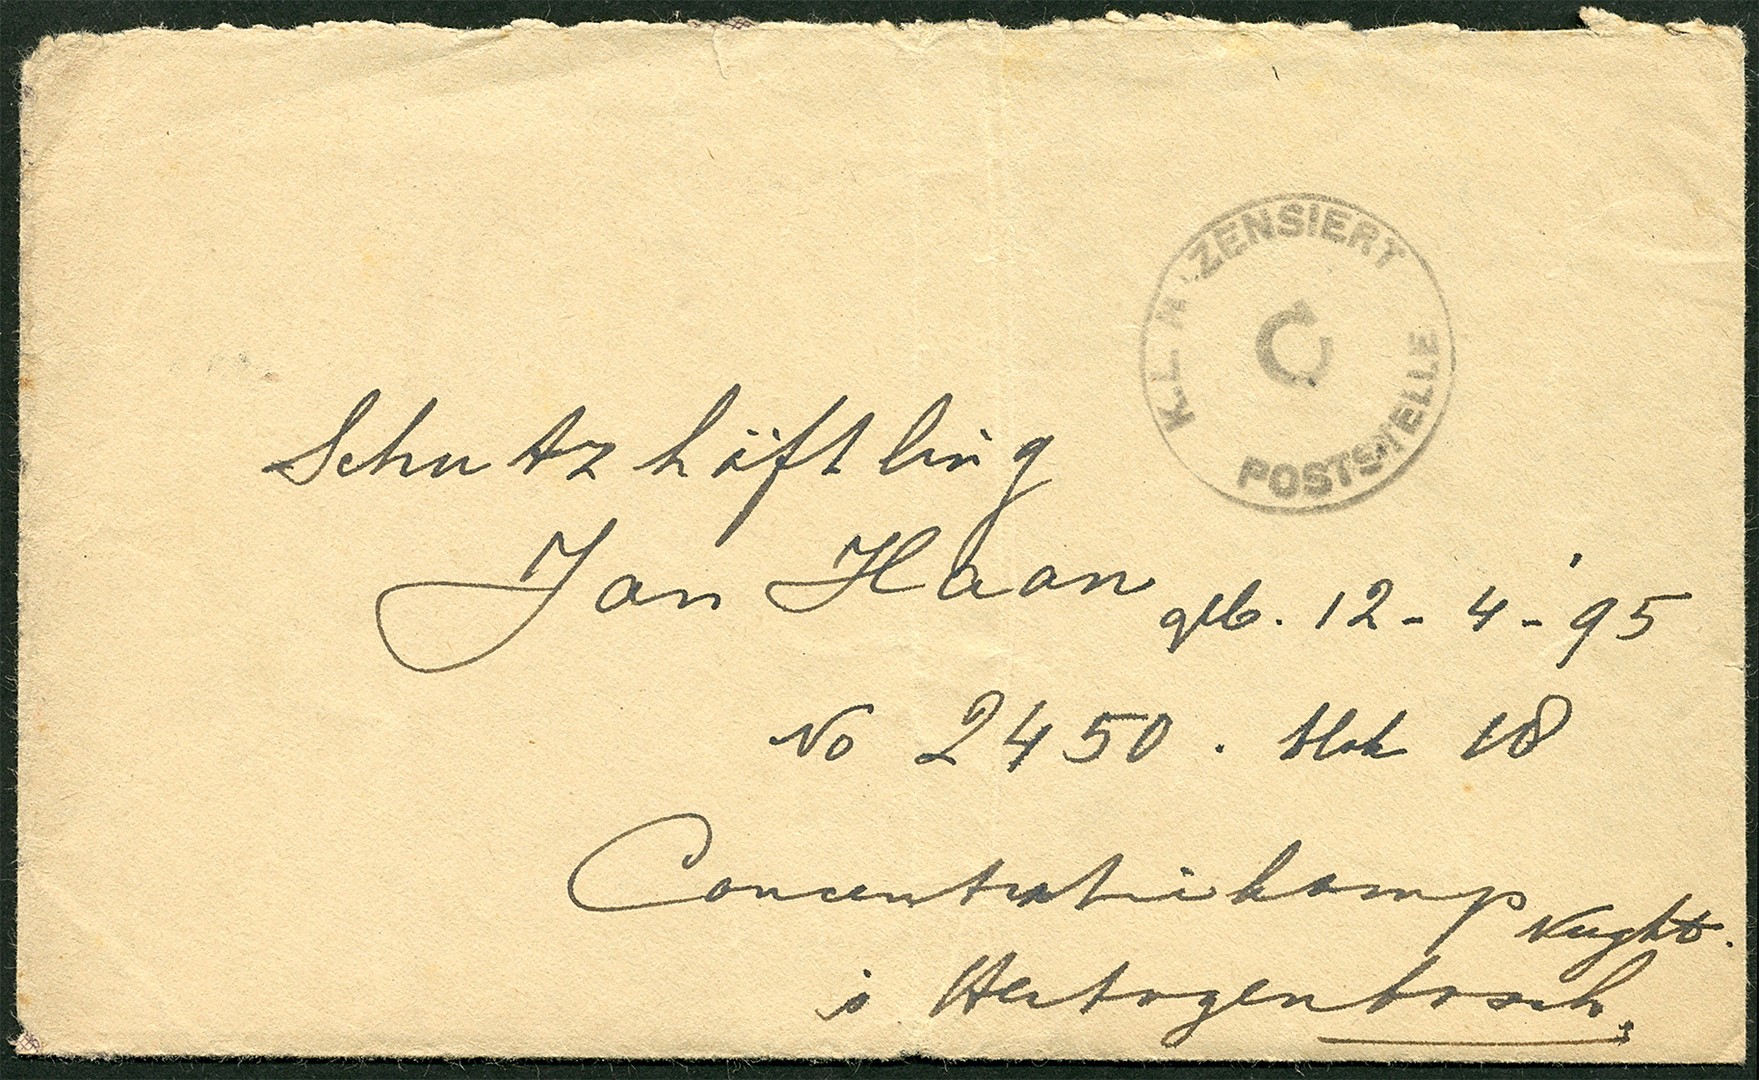 ZENSIERT
K.L.
C
POSTSTELLE
Schutzhäftling
Jan Haan geb. 12-4-'95
No 2450. blok 18
Concentratiekamp Vught.
's Hertogenbosch.